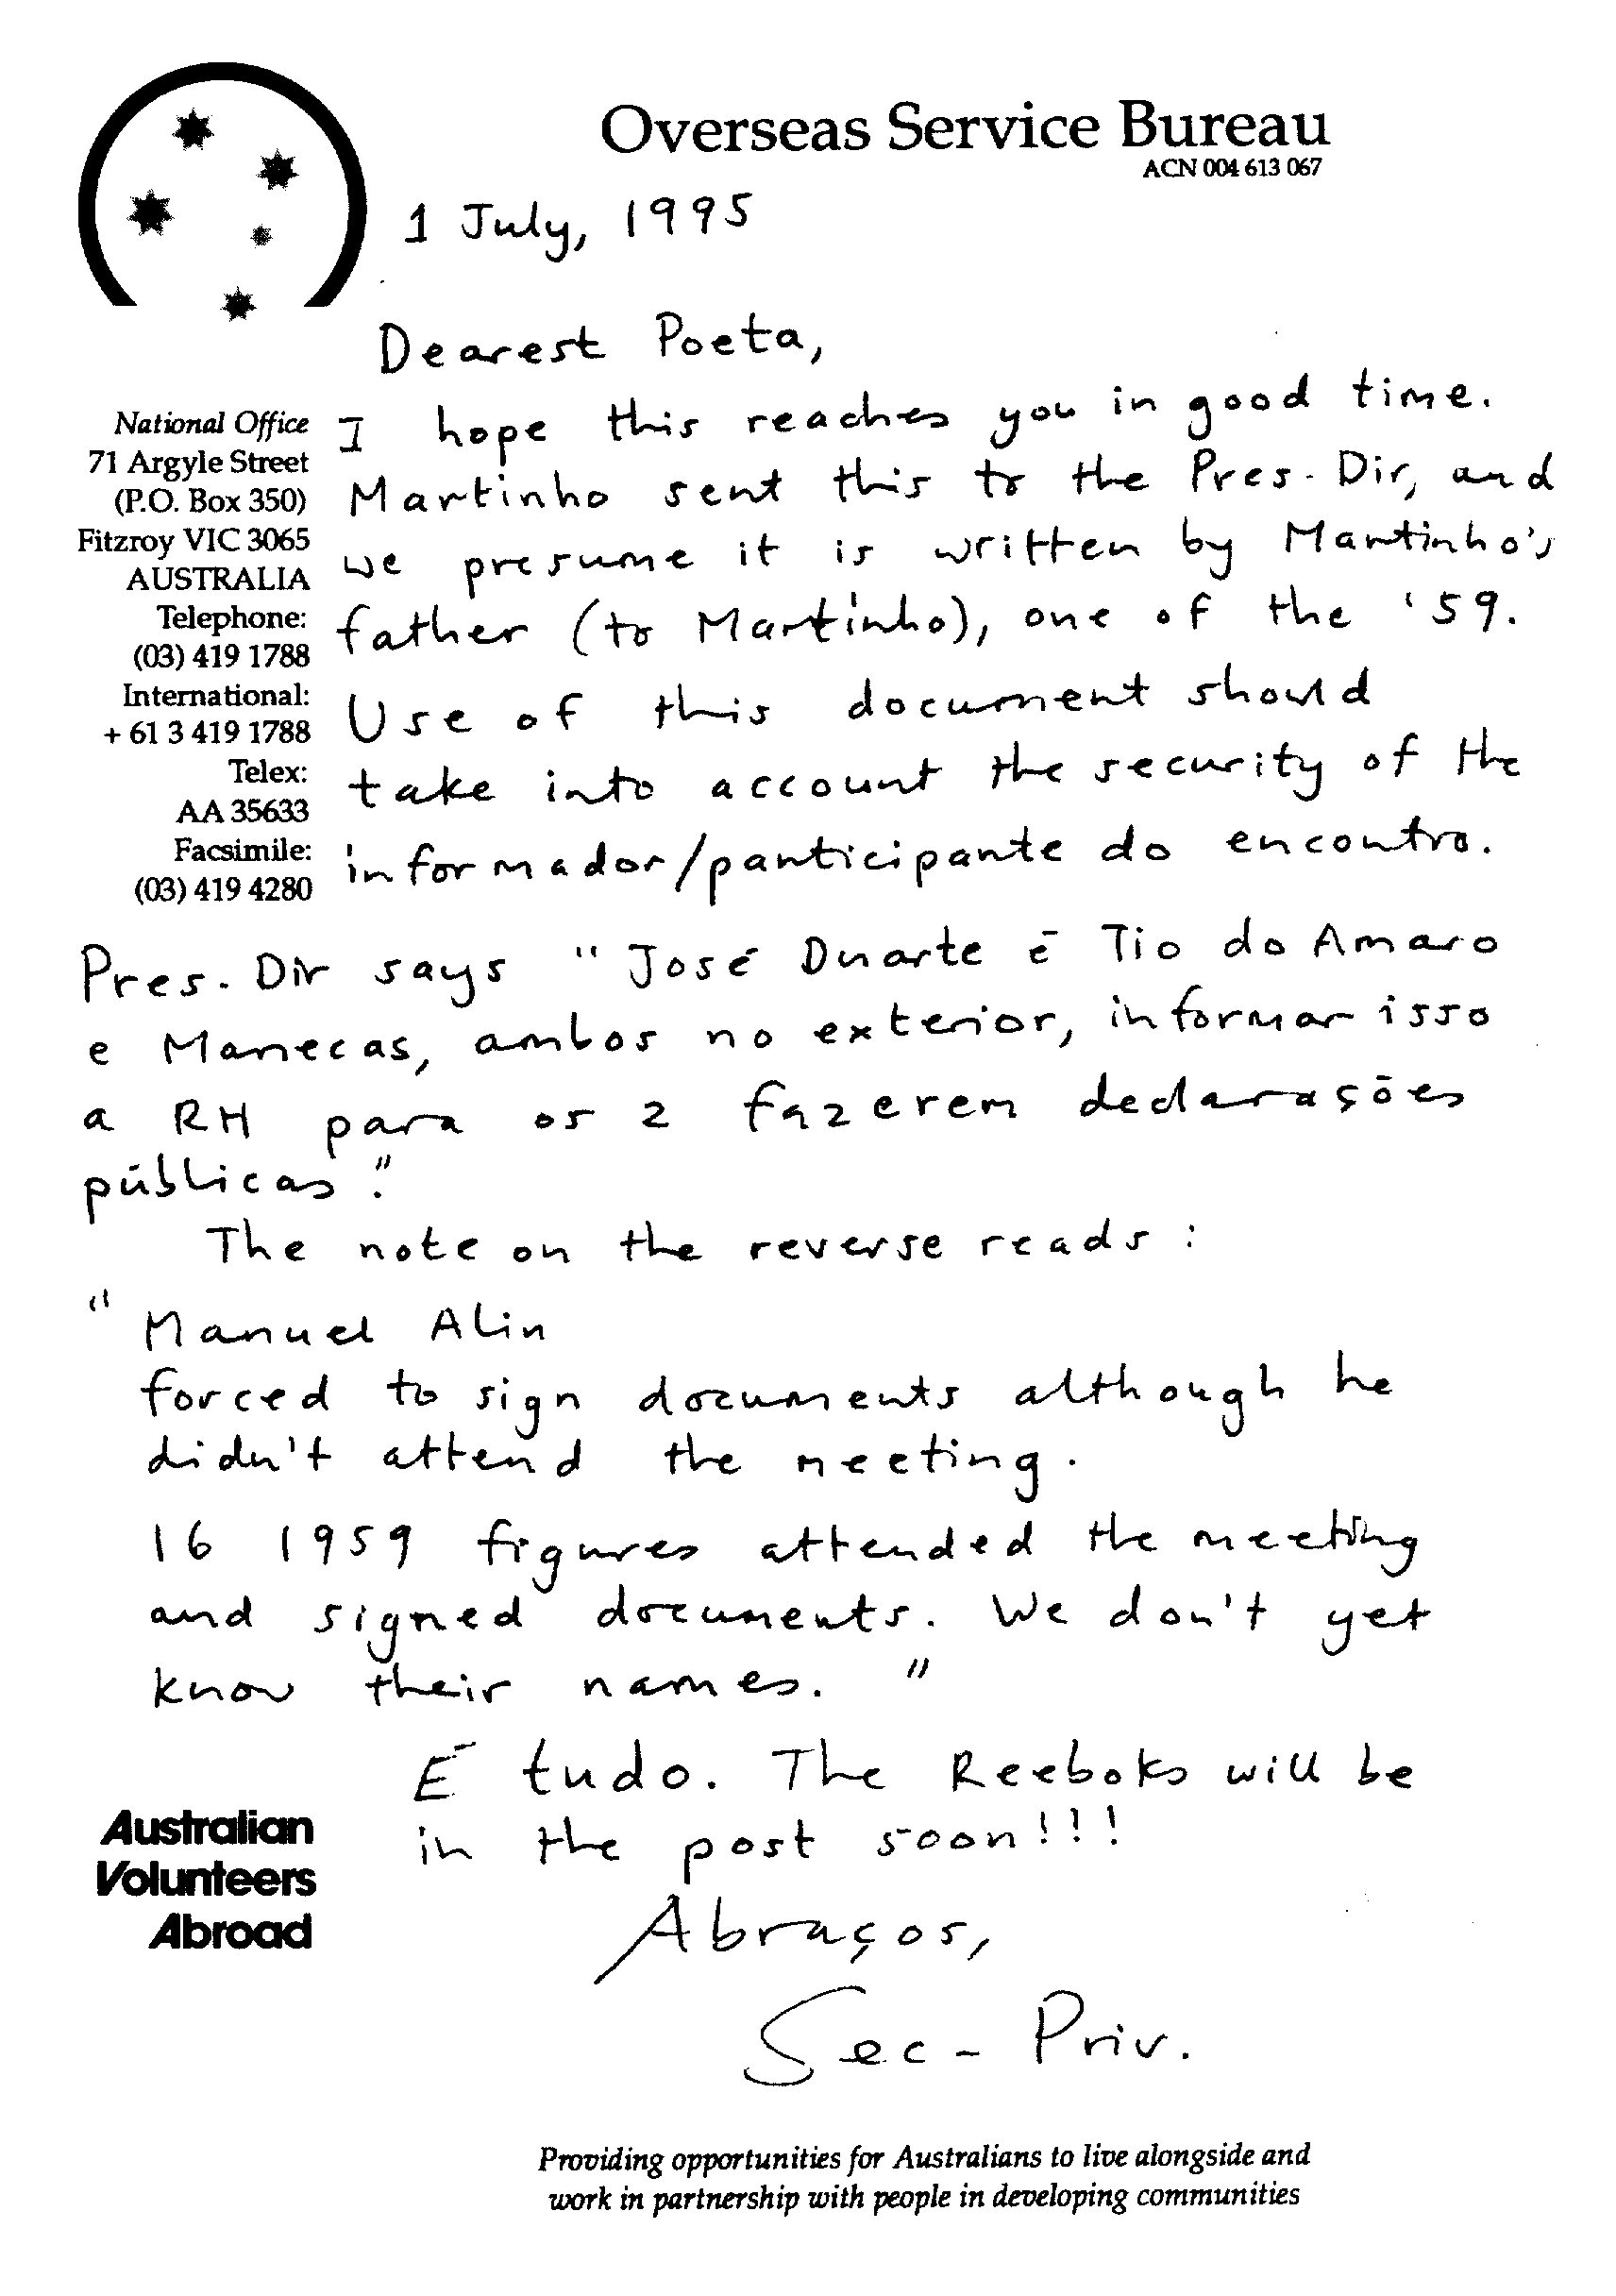 Overseas Service Bureau
ACN 004 613 067
1 July, 1995
Dearest Poeta,
National Office
71 Argyle Street
(P.O. Box 350)
Fitzroy VIC 3065
AUSTRALIA
Telephone:
(03) 419 1788
International:
+ 61 3 419 1788
Telex:
AA 35633
Facsimile:
(03) 419 4280
I hope this reaches you in good time.
Martinho sent this to the Pres. Dir, and
we presume it is written by Martinho's
father (to Martinho), one of the '59.
Use of this document should
take into account the security of the
informador/participante do encontro.
Pres. Dir says "José Duarte é Tio do Amaro
e Manecas, ambos no exterior, informar isso
a RH para os 2 fazerem declarações
públicas."
The note on the reverse reads :
"Manuel Alin
forced to sign documents although he
didn't attend the meeting.
16 1959 figures attended the meeting
and signed documents. We don't yet
know their names."
É tudo. The Reeboks will be
in the post soon!!!
Abraços,
Sec-Priv.
Australian
Volunteers
Abroad
Providing opportunities for Australians to live alongside and
work in partnership with people in developing communities